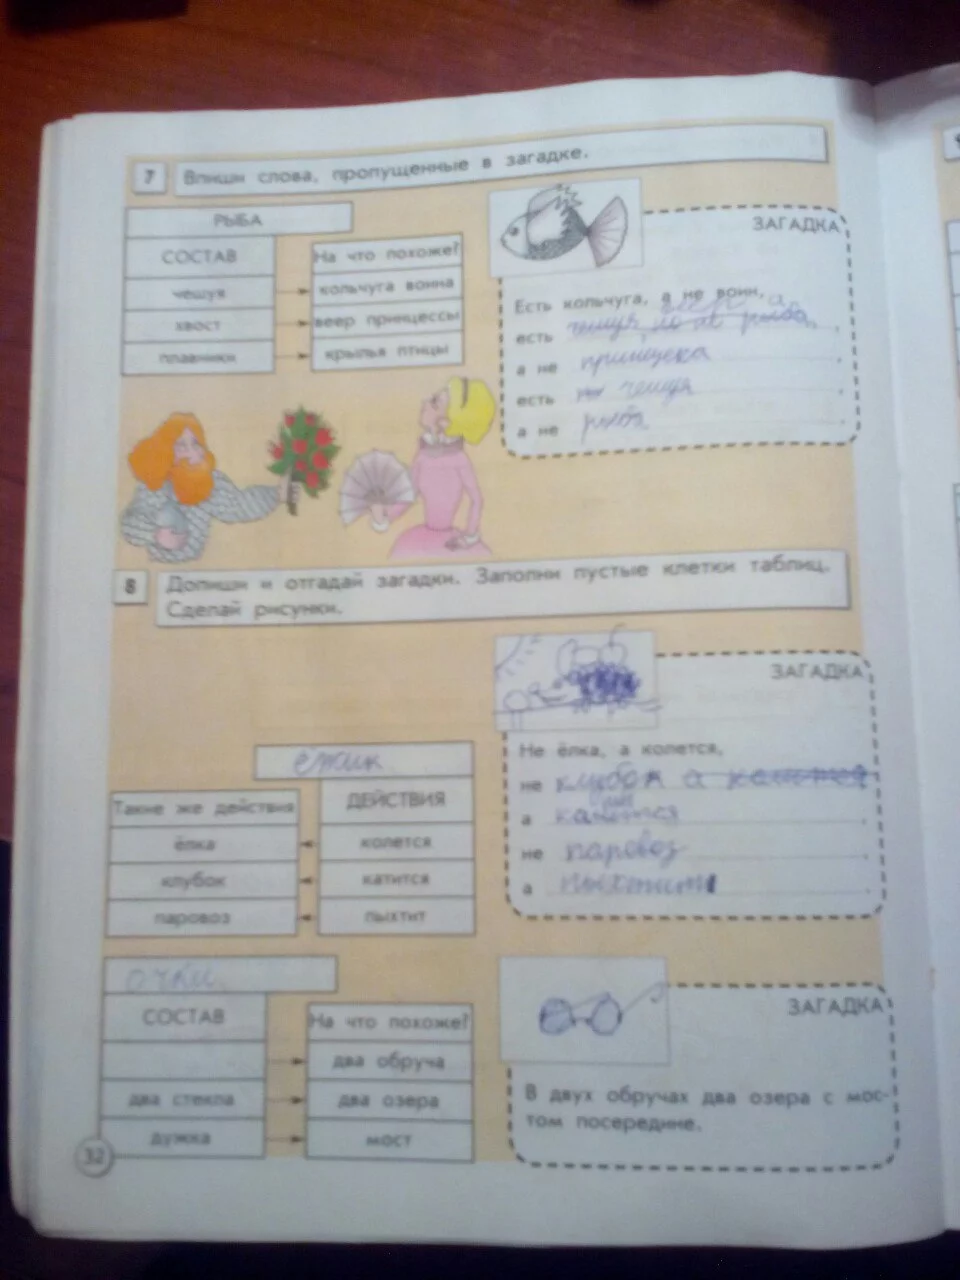 7 Впиши слова, пропущенные в загадке.
РЫБА
СОСТАВ
На что похоже?
чешуя
кольчуга воина
хвост
веер принцессы
плавники
крылья птицы
ЗАГАДКА
Есть кольчуга, а не воин,
есть чешуя рыба,
а не принцеса
есть чешуя,
а не рыба
8 Допиши и отгадай загадки. Заполни пустые клетки таблиц.
Сделай рисунки.
ёжик
Такие же действия
ДЕЙСТВИЯ
ёлка
колется
клубок
катится
паровоз
пыхтит
ЗАГАДКА
Не ёлка, а колется,
не клубок а,
а,
не паровоз,
а пыхтит.
очки
СОСТАВ
На что похоже?
два обруча
два стекла
два озера
дужка
мост
ЗАГАДКА
В двух обручах два озера с мос-
том посередине.
32